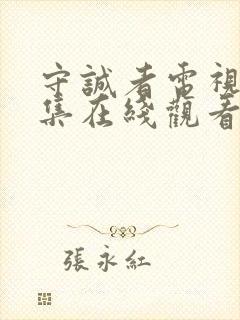 守誠者電視
集在綫觀看
張永紅